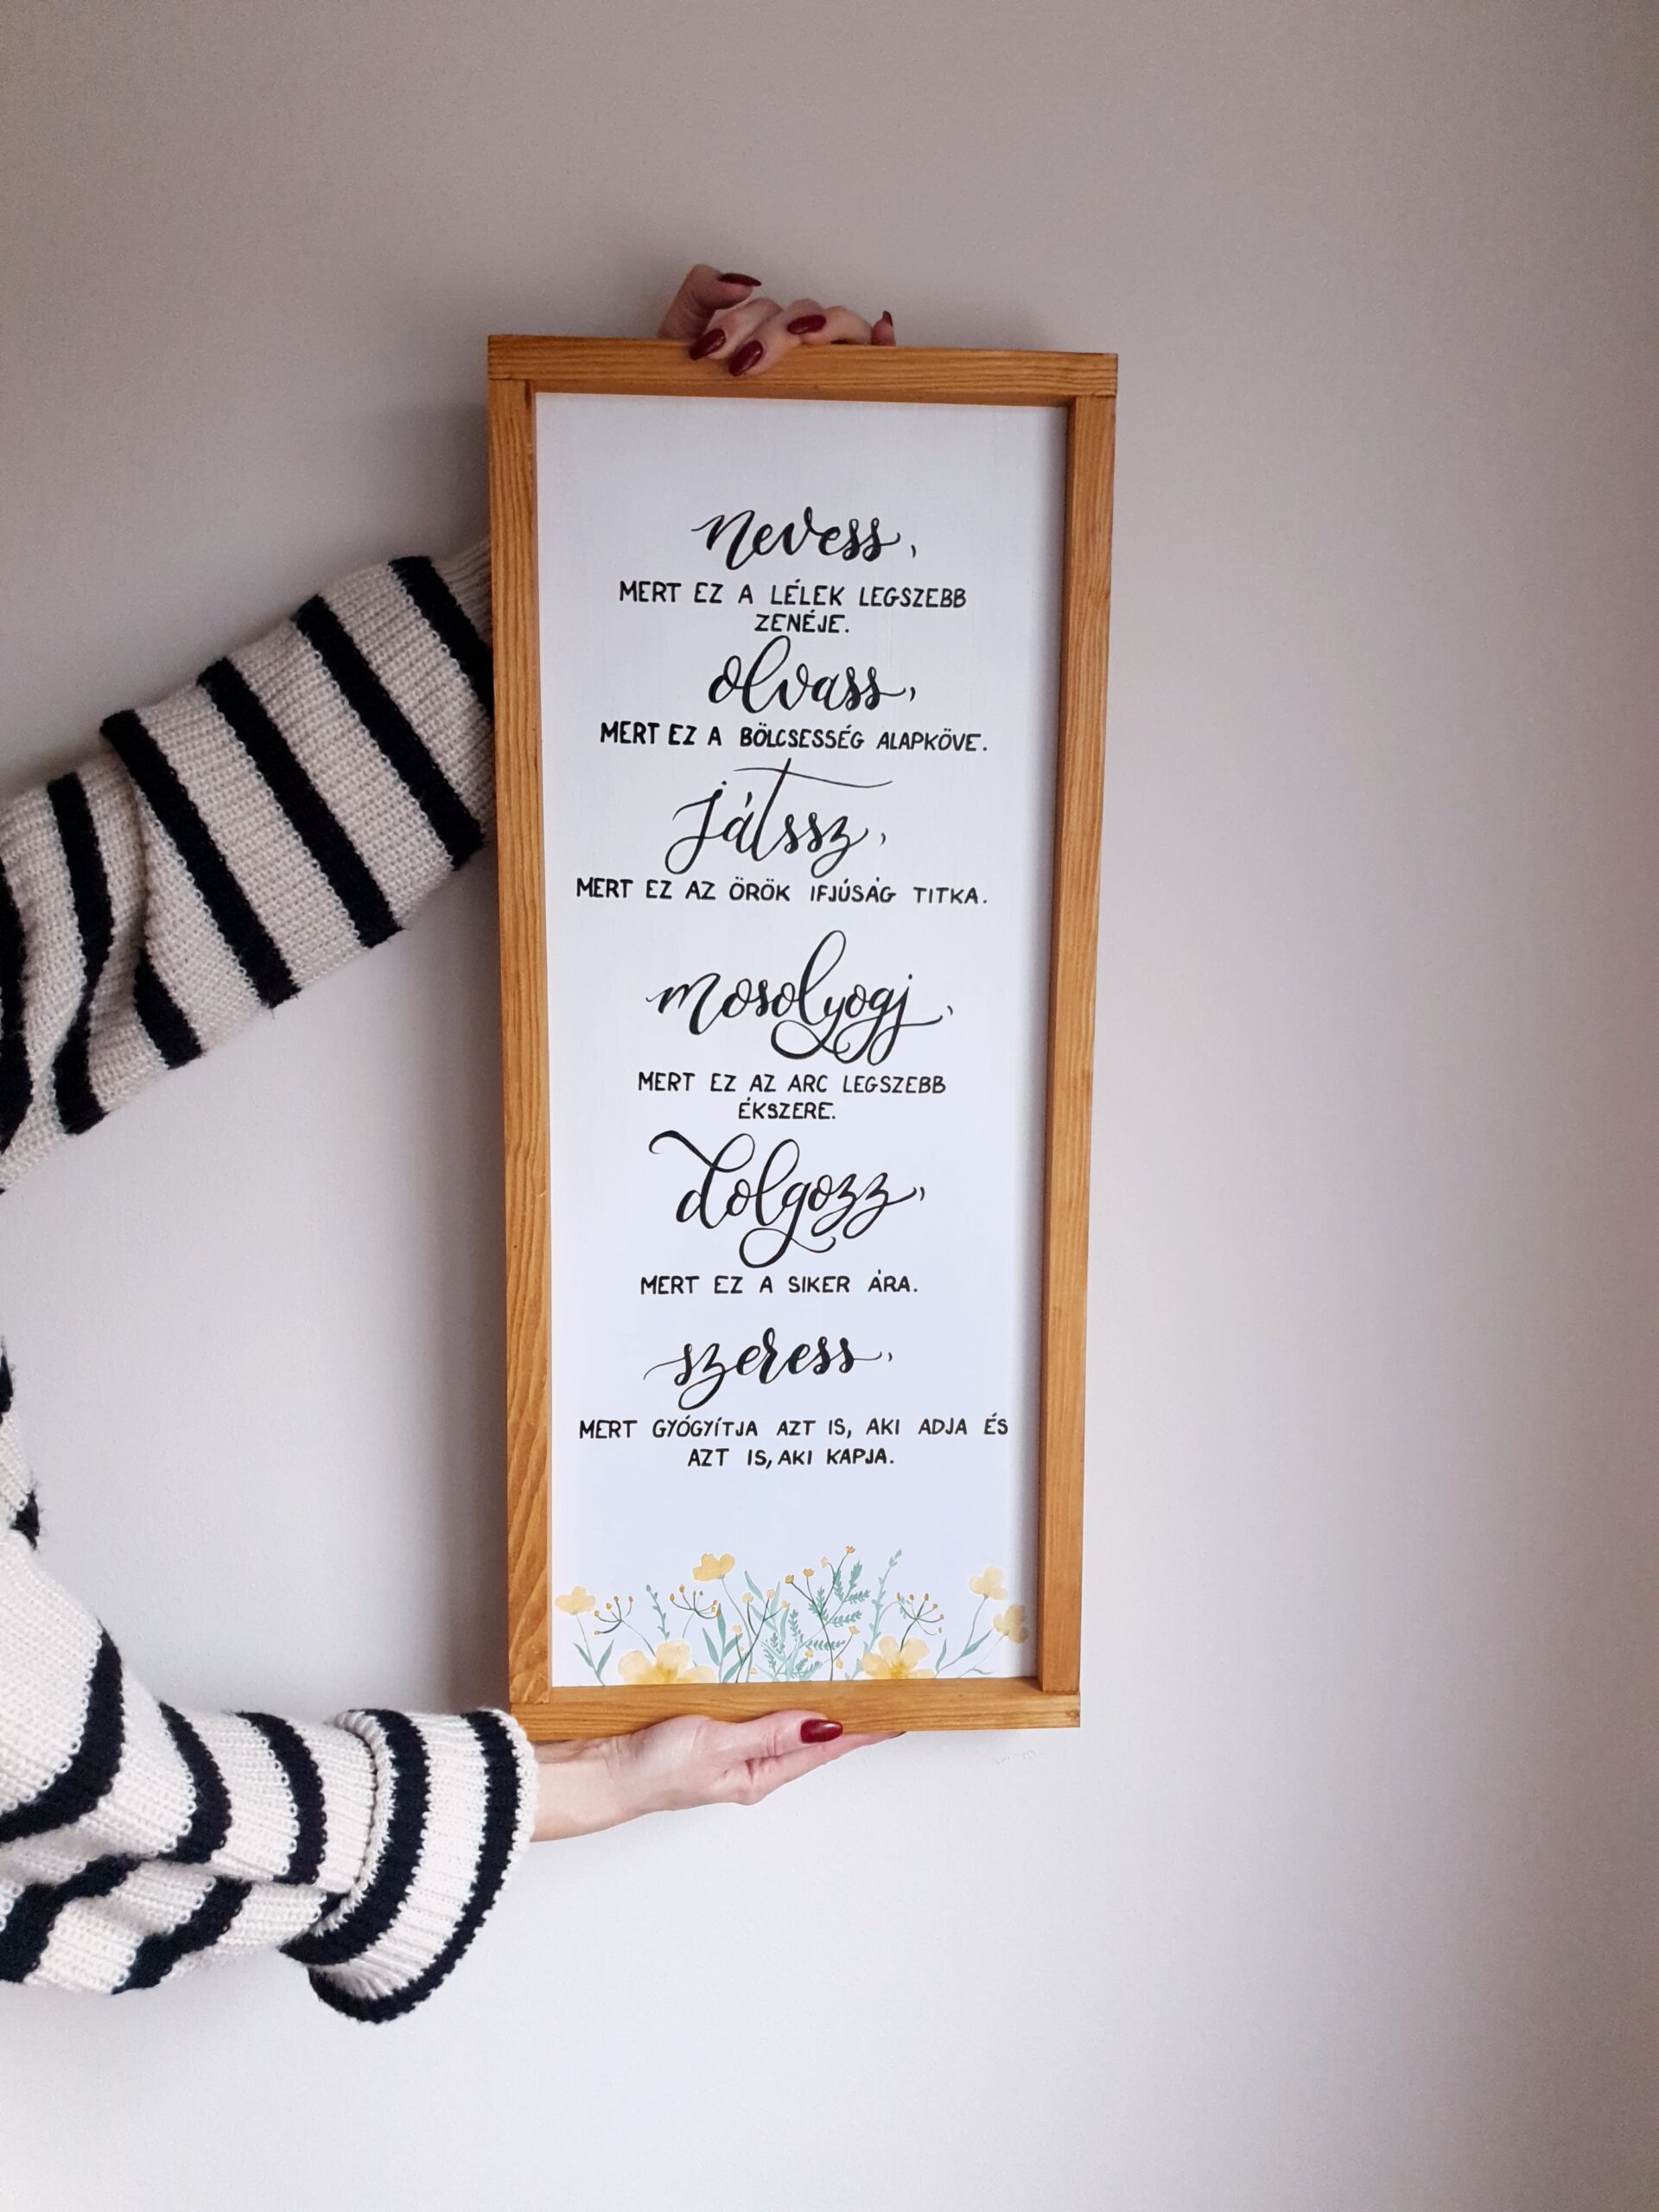 nevess,
MERT EZ A LÉLEK LEGSZEBB
ZENÉJE.
olvass,
MERT EZ A BÖLCSESSÉG ALAPKÖVE.
játssz,
MERT EZ AZ ÖRÖK IFJÚSÁG TITKA.
mosolyogj,
MERT EZ AZ ARC LEGSZEBB
ÉKSZERE.
dolgozz,
MERT EZ A SIKER ÁRA.
szeress,
MERT GYÓGYÍTJA AZT IS, AKI ADJA ÉS
AZT IS, AKI KAPJA.